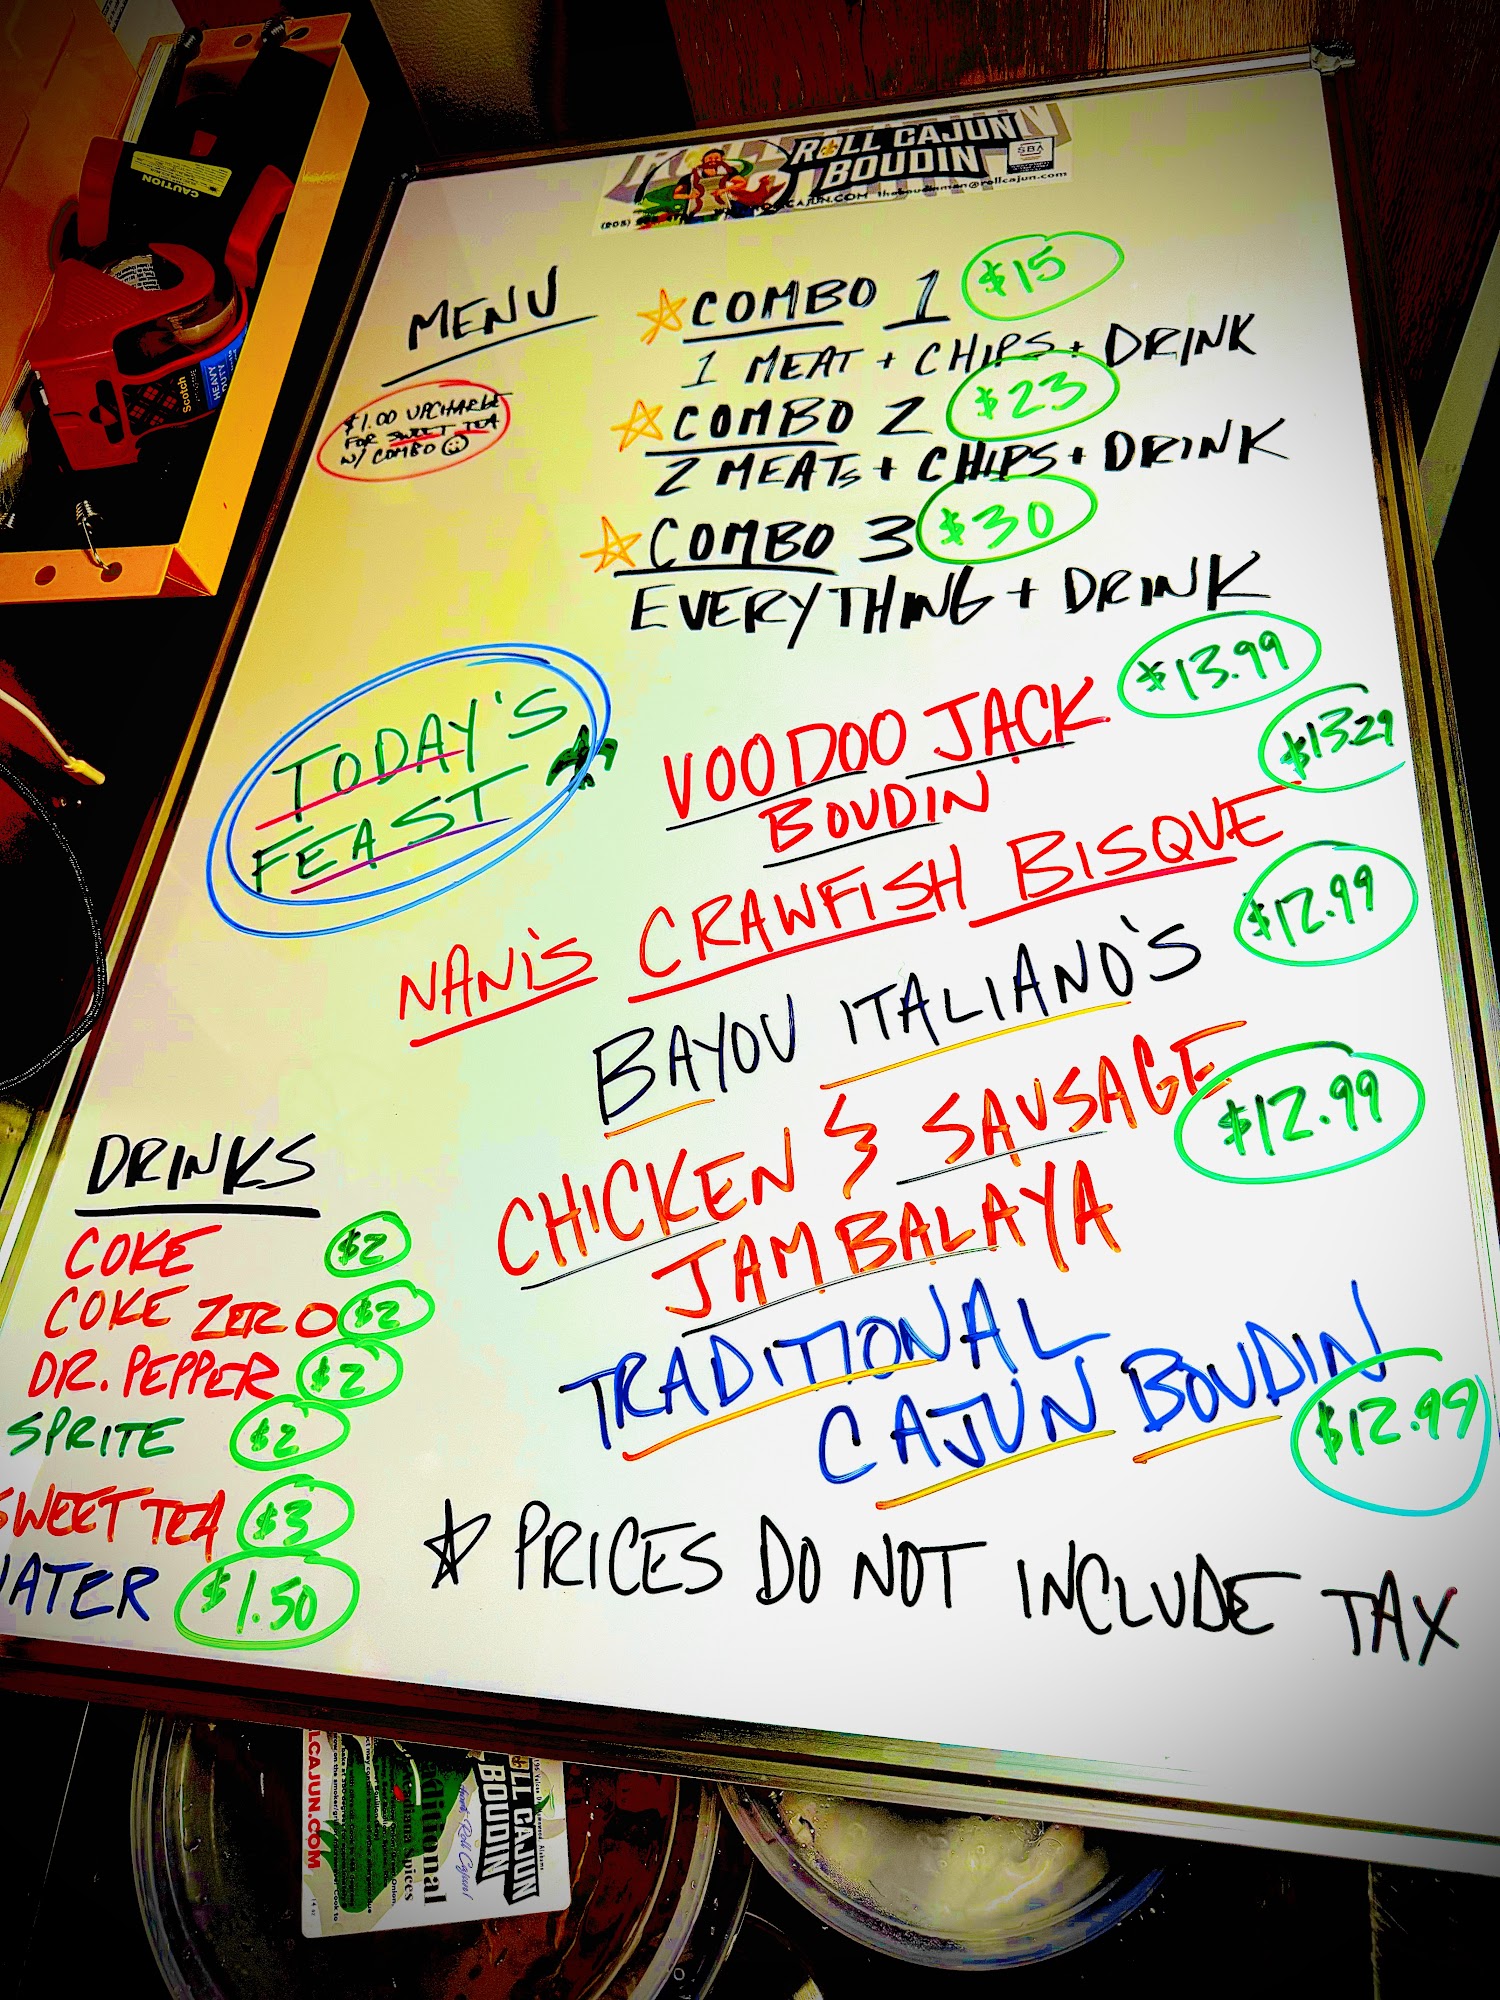 ROLL CAJUN
BOUDIN
SBA
thaboudinman@rollcajun.com
MENU
COMBO 1 $15
1 MEAT + CHIPS + DRINK
$1.00 UPCHARGE
FOR SWEET TEA
W/ COMBO
COMBO 2 $23
2 MEATS + CHIPS + DRINK
COMBO 3 $30
EVERYTHING + DRINK
TODAY'S
FEAST
VOODOO JACK $13.99
BOUDIN
NANI'S CRAWFISH BISQUE $13.29
BAYOU ITALIANO'S $12.99
CHICKEN & SAUSAGE
JAMBALAYA $12.99
TRADITIONAL
CAJUN BOUDIN $12.99
DRINKS
COKE $2
COKE ZERO $2
DR. PEPPER $2
SPRITE $2
SWEET TEA $3
WATER $1.50
* PRICES DO NOT INCLUDE TAX
CAUTION
Scotch
HEAVY
DUTY
LL CAJUN
BOUDIN
LCAJUN.COM